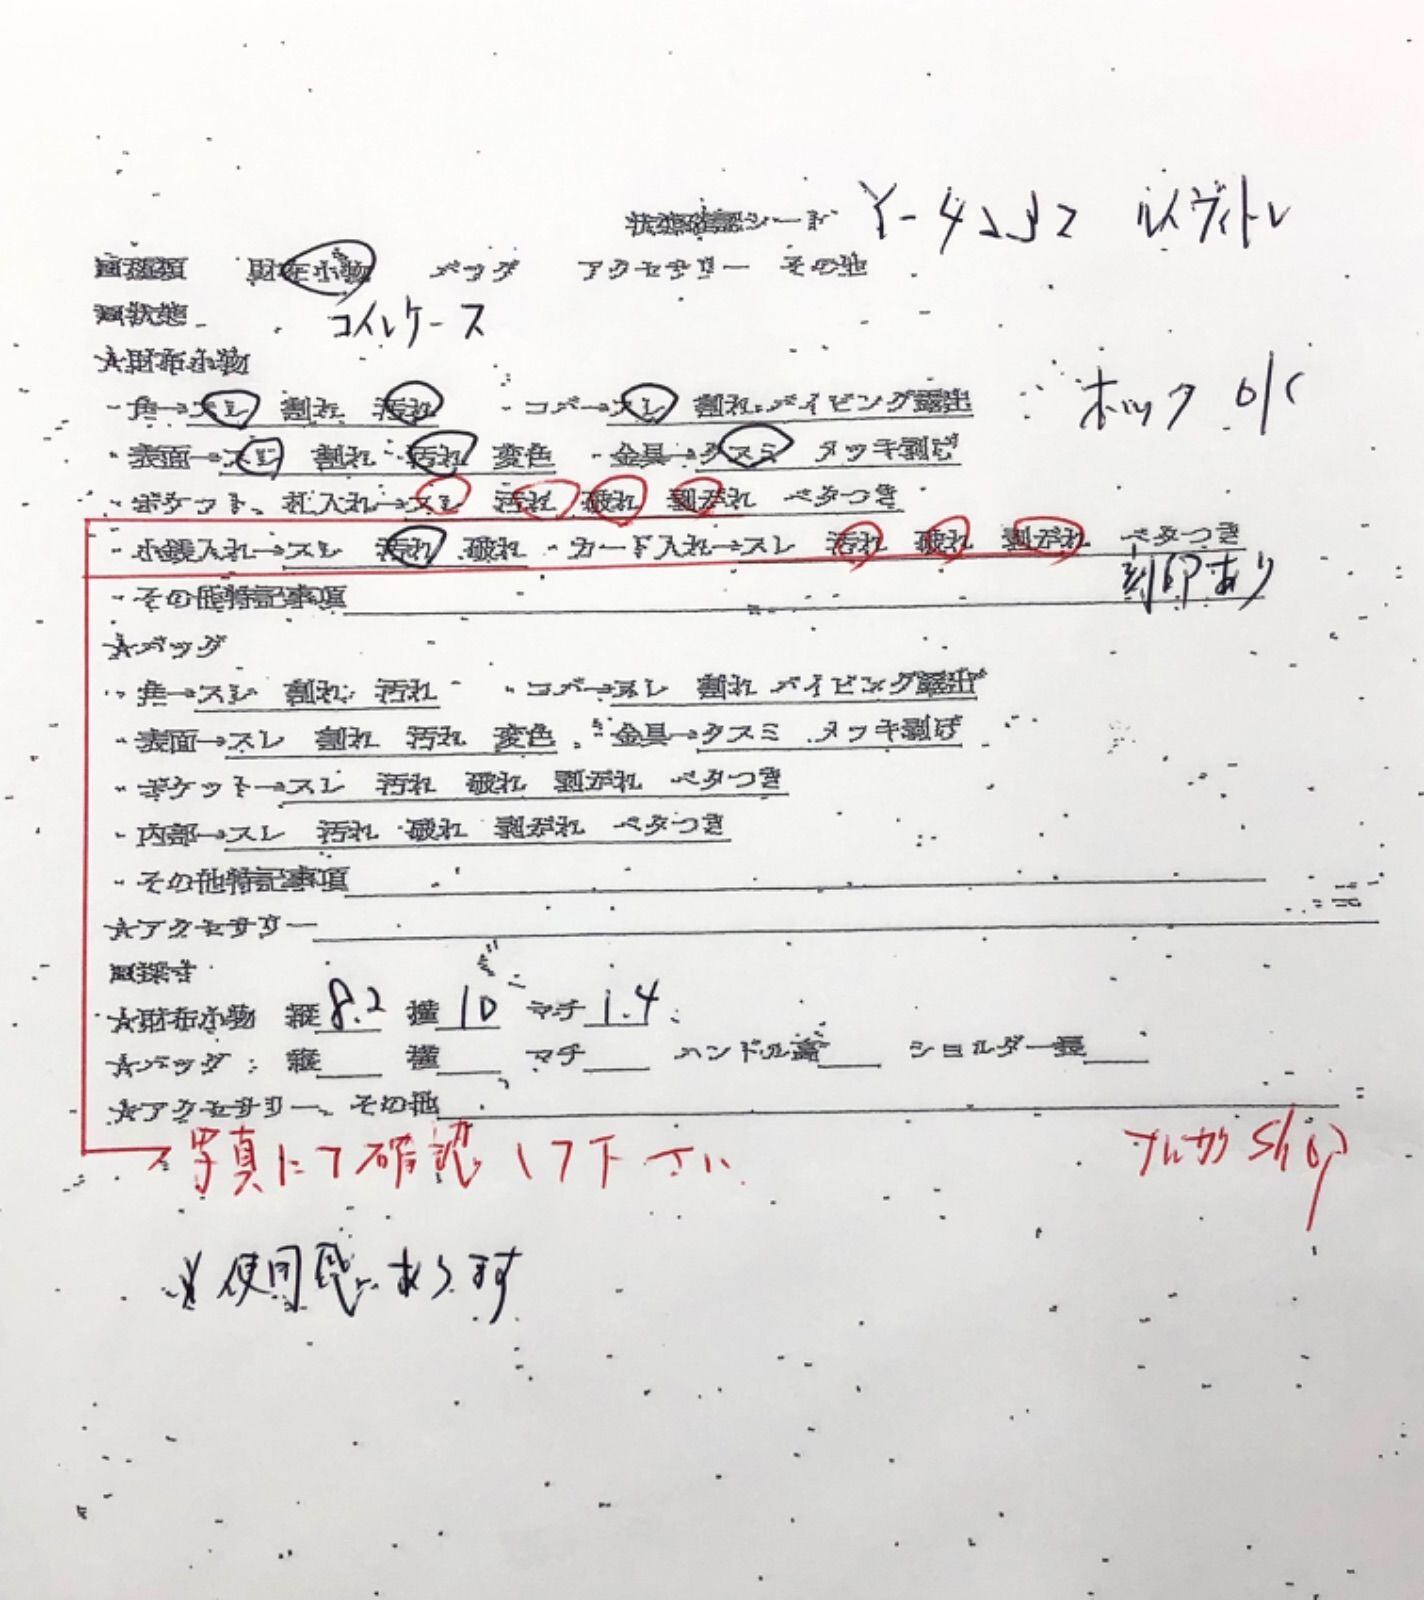 状態確認シート Y-4232 ルイヴィトン
■種類 財布小物 バッグ アクセサリー その他
■状態 コインケース
★財布小物
・角→スレ 割れ 汚れ ・コバ→スレ 割れ パイピング露出 ホック OK
・表面→スレ 割れ 汚れ 変色 ・金具→クスミ メッキ剥げ
・ポケット、札入れ→スレ 汚れ 破れ 剥がれ ベタつき
・小銭入れ→スレ 汚れ 破れ ・カード入れ→スレ 汚れ 破れ 剥がれ ベタつき
・その他特記事項 刻印あり
★バッグ
・角→スレ 割れ 汚れ ・コバ→スレ 割れ パイピング露出
・表面→スレ 割れ 汚れ 変色 ・金具→クスミ メッキ剥げ
・ポケット→スレ 汚れ 破れ 剥がれ ベタつき
・内部→スレ 汚れ 破れ 剥がれ ベタつき
・その他特記事項
★アクセサリー
■採寸
★財布小物 縦8.2 横10 マチ1.4
★バッグ 縦 横 マチ ハンドル高 ショルダー長
★アクセサリー、その他
写真にて確認して下さい Shop
※使用感あります